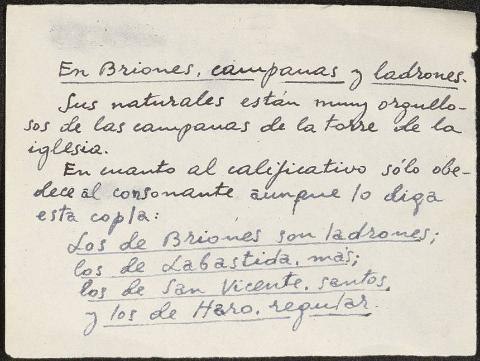 En Briones, campanas y ladrones.
Sus naturales están muy orgullo-
sos de las campanas de la torre de la
iglesia.
En cuanto al calificativo sólo obe-
dece al consonante aunque lo diga
esta copla:
Los de Briones son ladrones;
los de Labastida, más;
los de San Vicente, santos,
y los de Haro, regular.